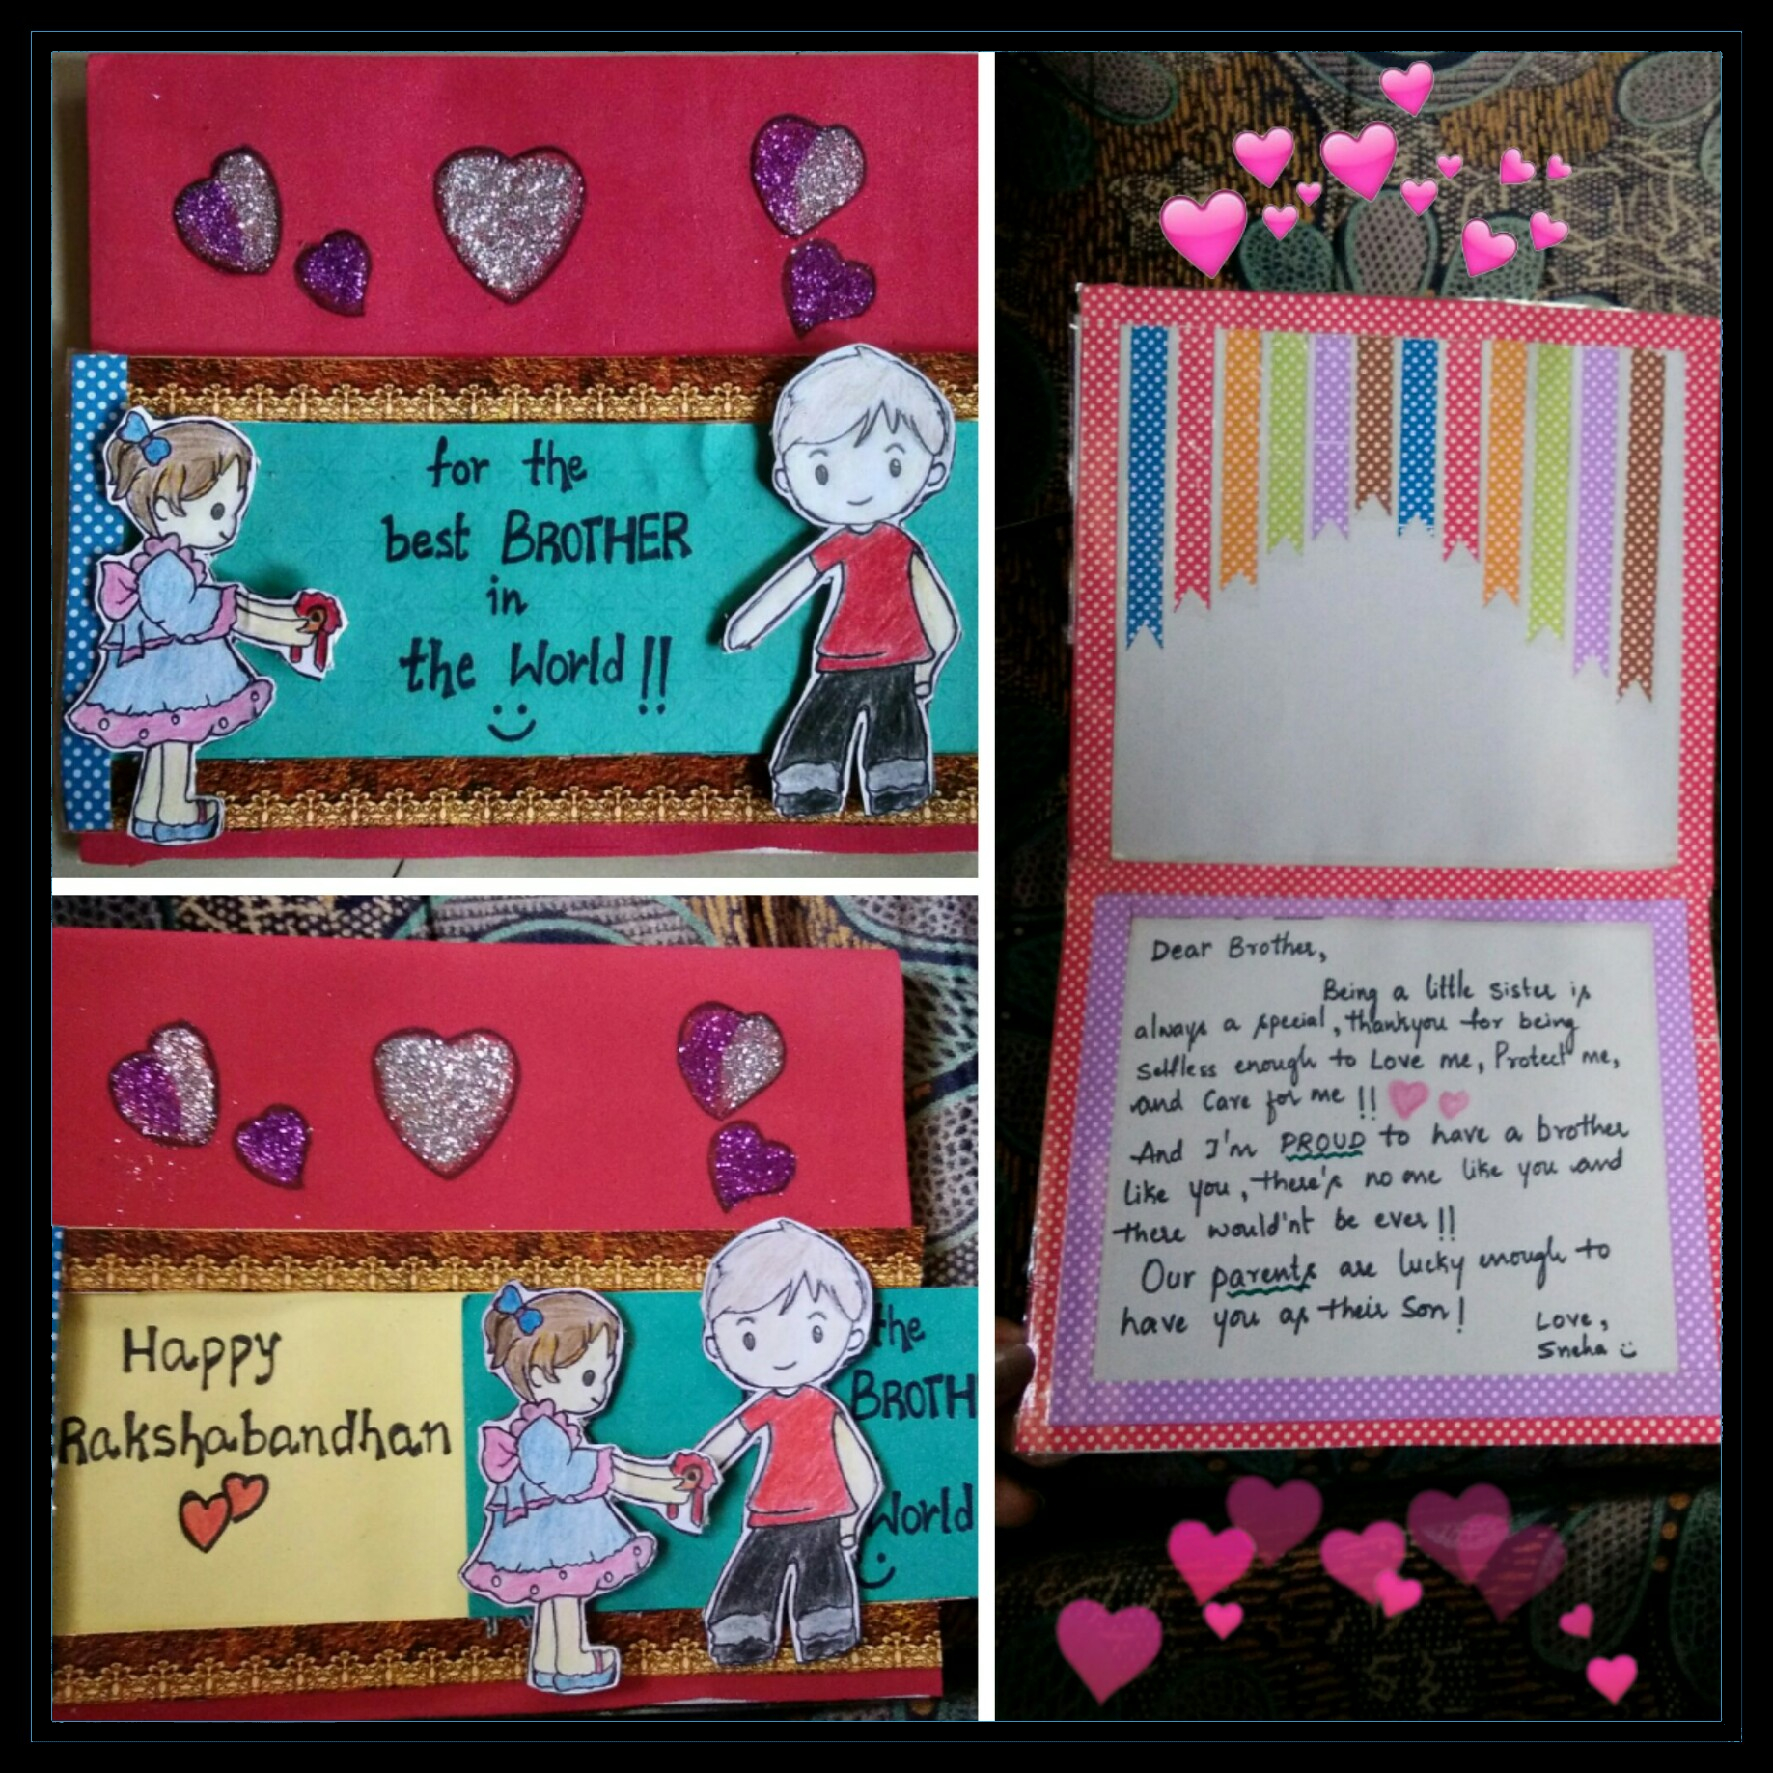 for the
best BROTHER
in
the World !!
Happy
Rakshabandhan
the
BROTH
World
Dear Brother,
Being a little sister is
always a special, thankyou for being
selfless enough to Love me, Protect me,
and Care for me !!
And I'm PROUD to have a brother
like you, there's no one like you and
there would'nt be ever !!
Our parents are lucky enough to
have you as their Son!
Love,
Sneha